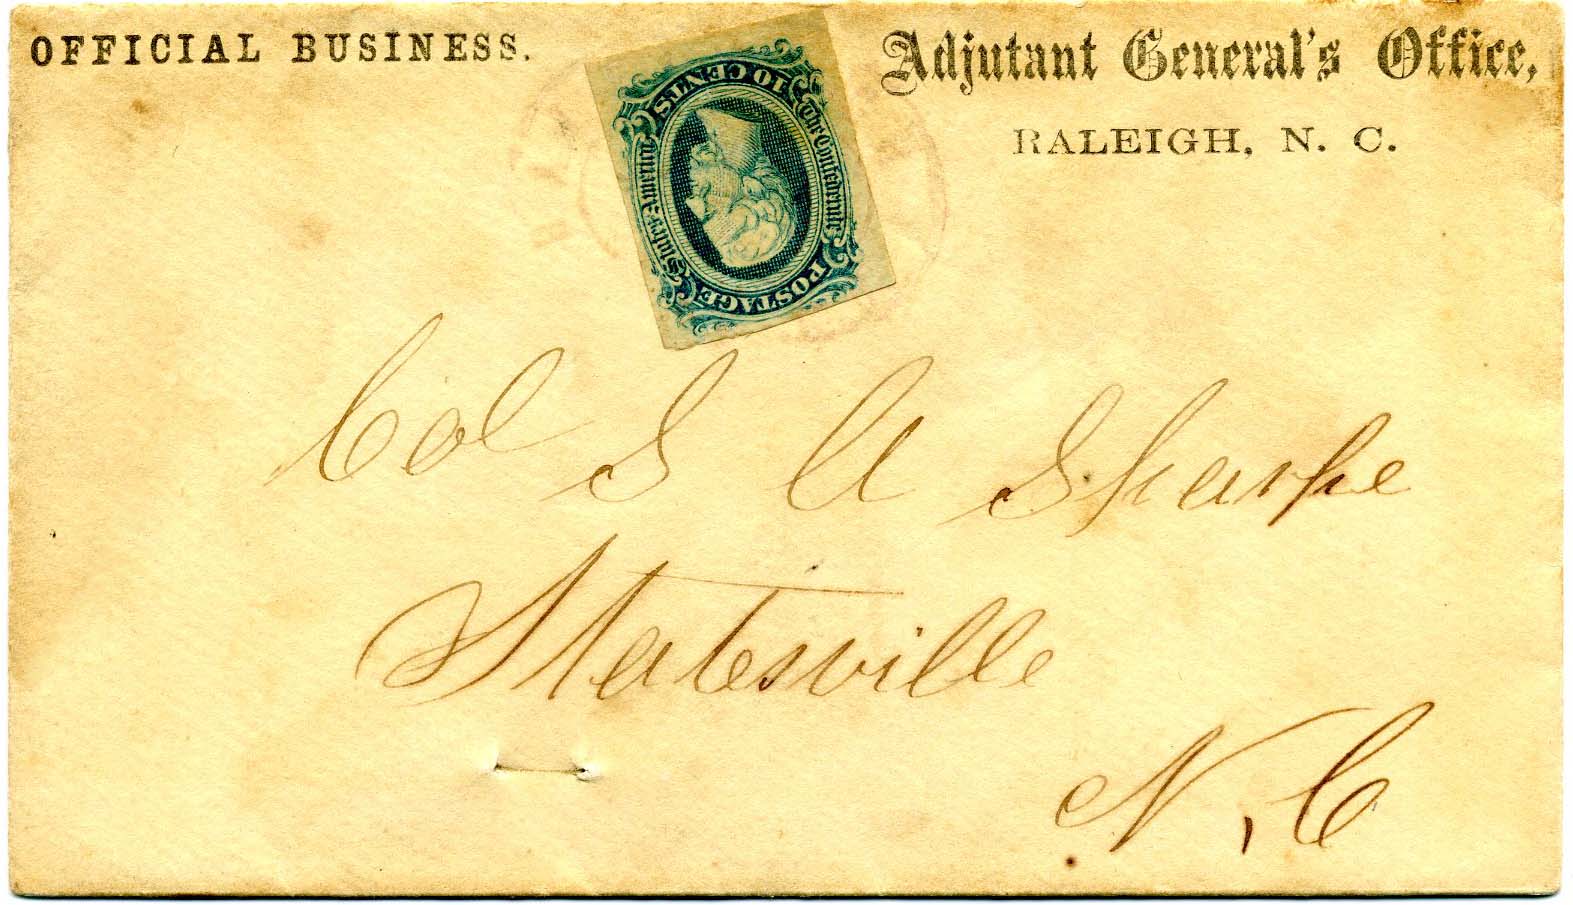 OFFICIAL BUSINESS.
Adjutant General's Office,
RALEIGH, N. C.
The Confederate States of America
POSTAGE
10 CENTS
Col S A Sharpe
Statesville
N, C